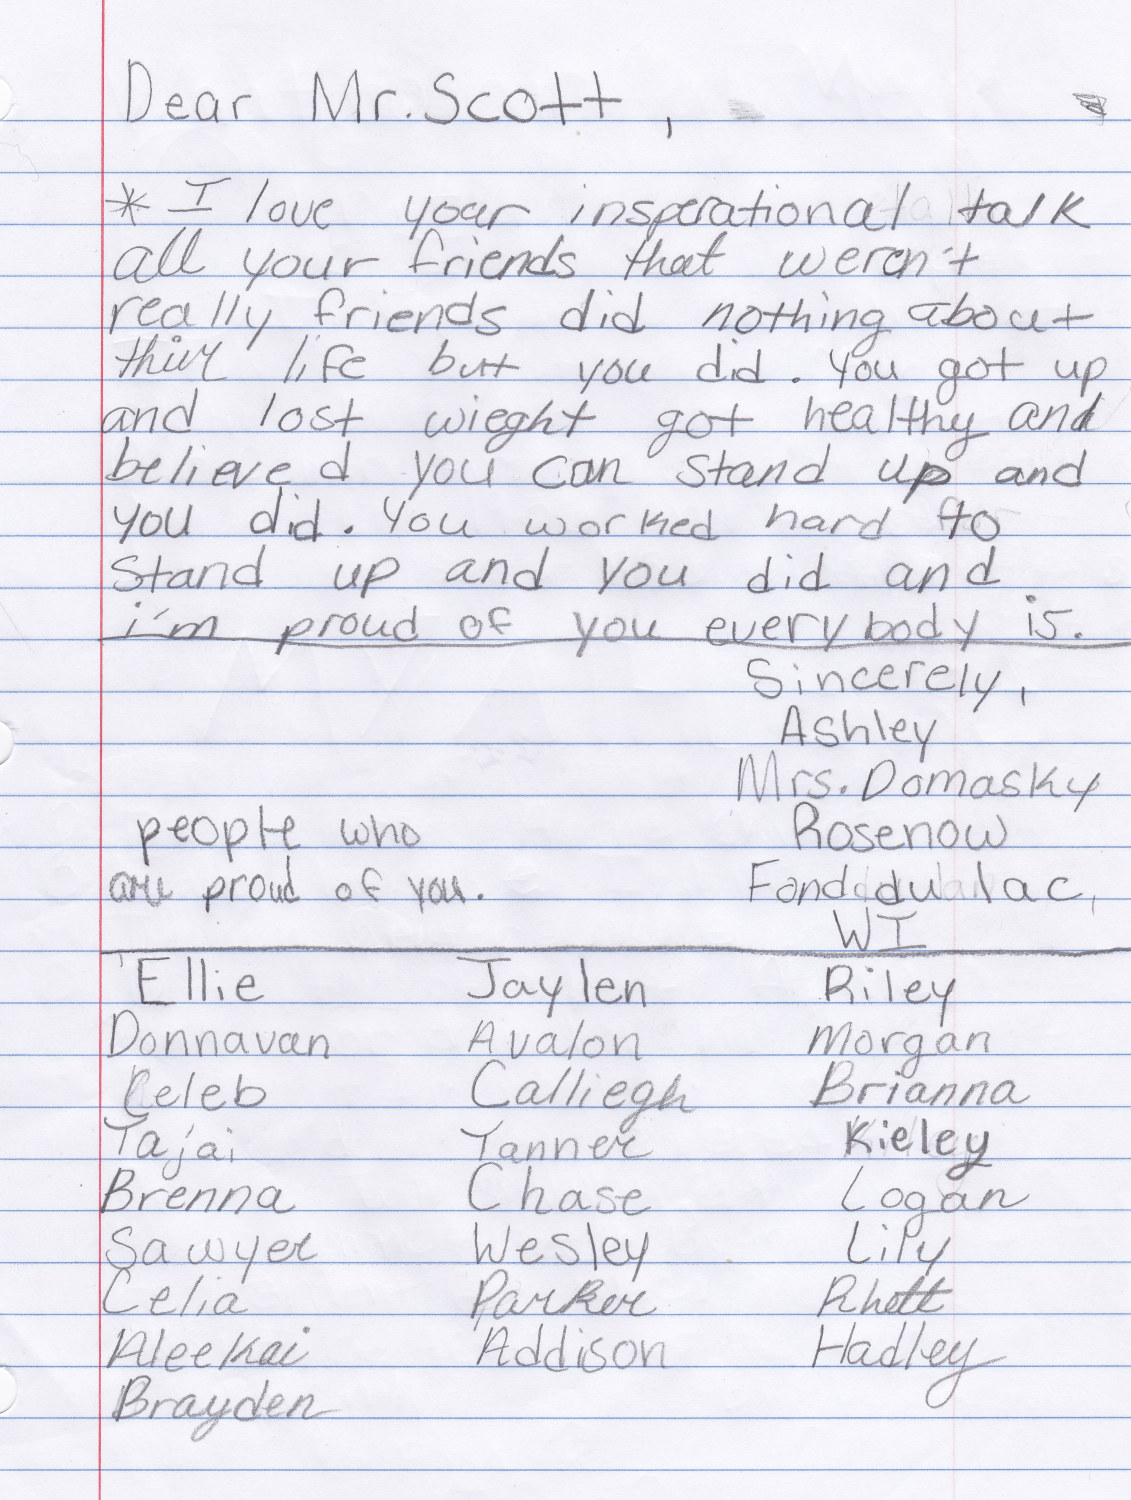 Dear Mr. Scott,
* I love your insperational talk
all your friends that weren't
really friends did nothing about
thier life but you did. You got up
and lost wieght got healthy and
believed you can stand up and
you did. You worked hard to
stand up and you did and
i'm proud of you every body is.
Sincerely,
Ashley
Mrs. Domasky
Rosenow
Fond du lac,
WI
people who
are proud of you.
Ellie Jaylen Riley
Donnavan Avalon Morgan
Celeb Calliegh Brianna
Tajai Tanner Kieley
Brenna Chase Logan
Sawyer Wesley Lily
Celia Parker Rhett
Aleekai Addison Hadley
Brayden